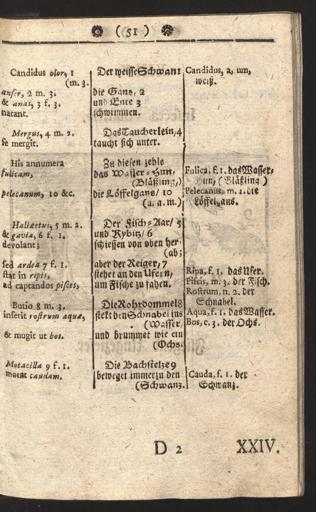 (51)
Candidus olor, 1
(m. 3.
anser, 2 m. 3.
& anas, 3 f. 3.
natant.
Mergus, 4 m. 2.
se mergit.
His annumera
fulicam,
pelecanum, 10 &c.
Haliaetus, 5 m. 2.
& gavia, 6 f. 1.
devolant;
sed ardea 7 f. 1.
stat in ripis,
ad captandos pisces,
Butio 8 m. 3.
inserit rostrum aquæ,
& mugit ut bos.
Motacilla 9 f. 1.
motat caudam.
Der weisse Schwan 1
die Gans, 2
und Ente 3
schwimmen.
Das Taucherlein, 4
taucht sich unter.
Zu diesen zehle
das Wasser-Hun,
(Bläßling,)
die Löffelgans/ 10
(a. a. m.)
Der Fisch-Aar/ 5
und Kybitz/ 6
schiessen von oben her
(ab;
aber der Reiger, 7
stehet an den Ufern,
um Fische zu fahen.
Die Rohrdommel 8
stekt den Schnabel ins
(Wasser,
und brummet wie ein
(Ochs.
Die Bachstelze 9
beweget immerzu den
(Schwanz.
Candidus, a, um,
weiß.
Fulica, f. 1. das Wasser-
Hun, (Bläßling)
Pelecanus, m. 1. die
Löffelgans.
Ripa, f. 1. das Ufer.
Piscis, m. 3. der Fisch.
Rostrum, n. 2. der
Schnabel.
Aqua, f. 1. das Wasser.
Bos, c. 3. der Ochs.
Cauda, f. 1. der
Schwanz.
D 2
XXIV.